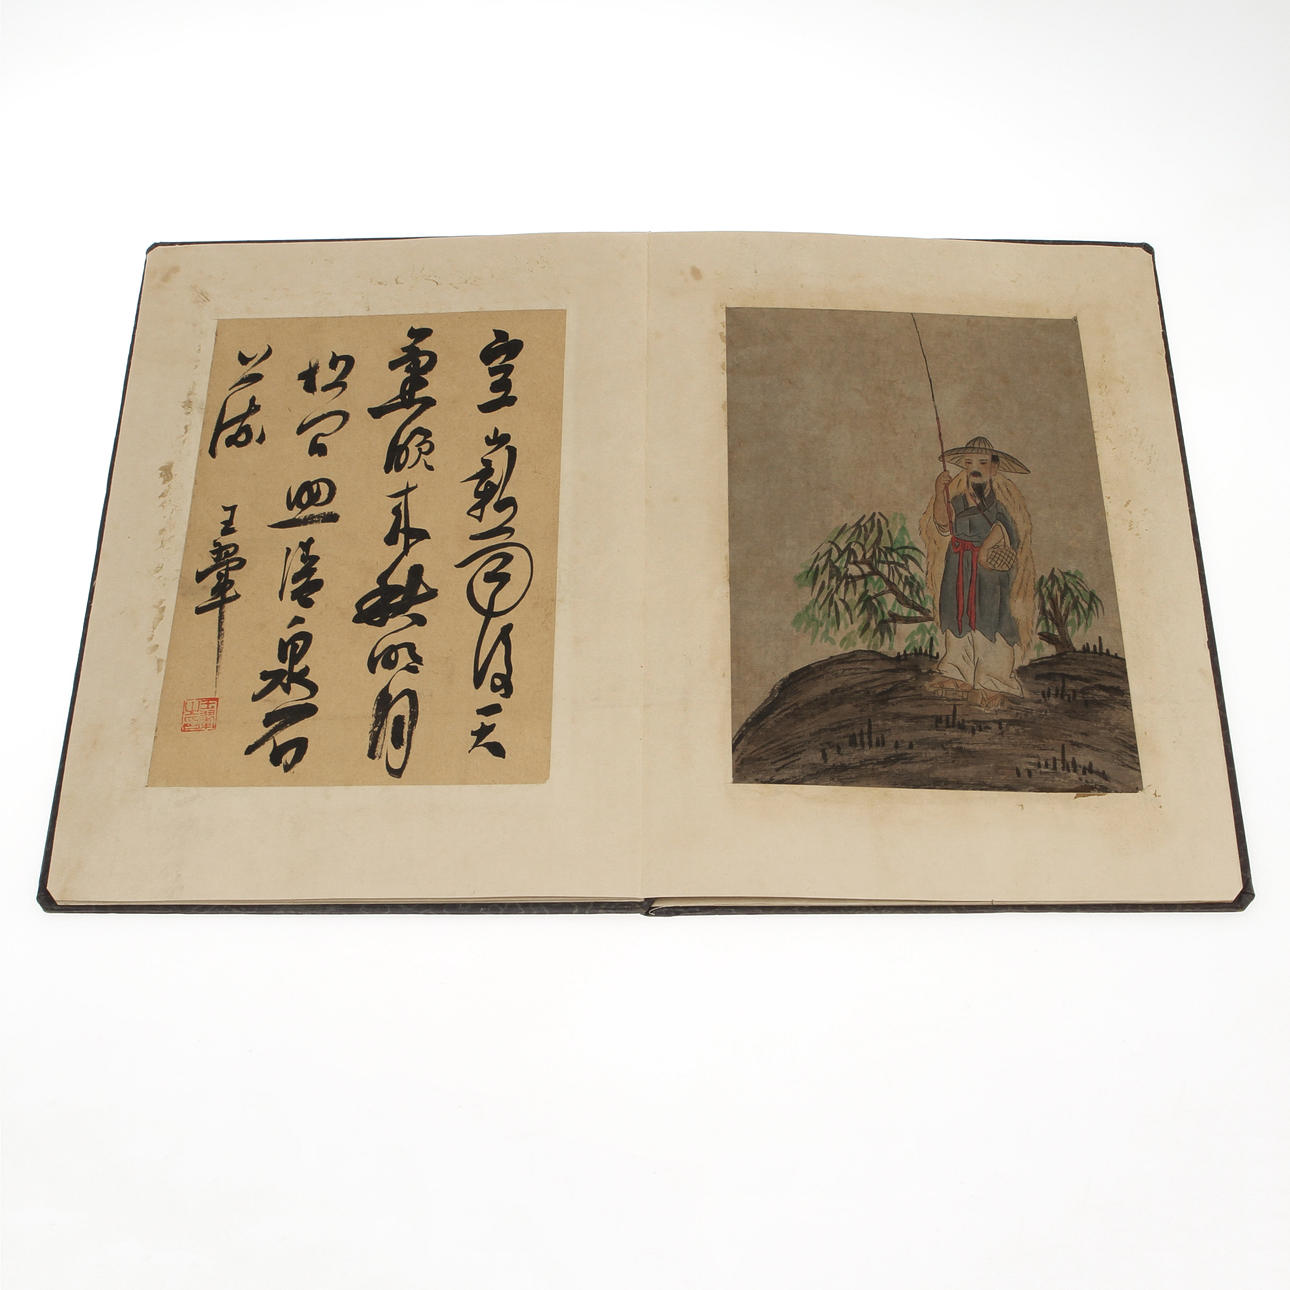 空山新雨後天
氣晚來秋明月
松間照清泉石
上流
王翬